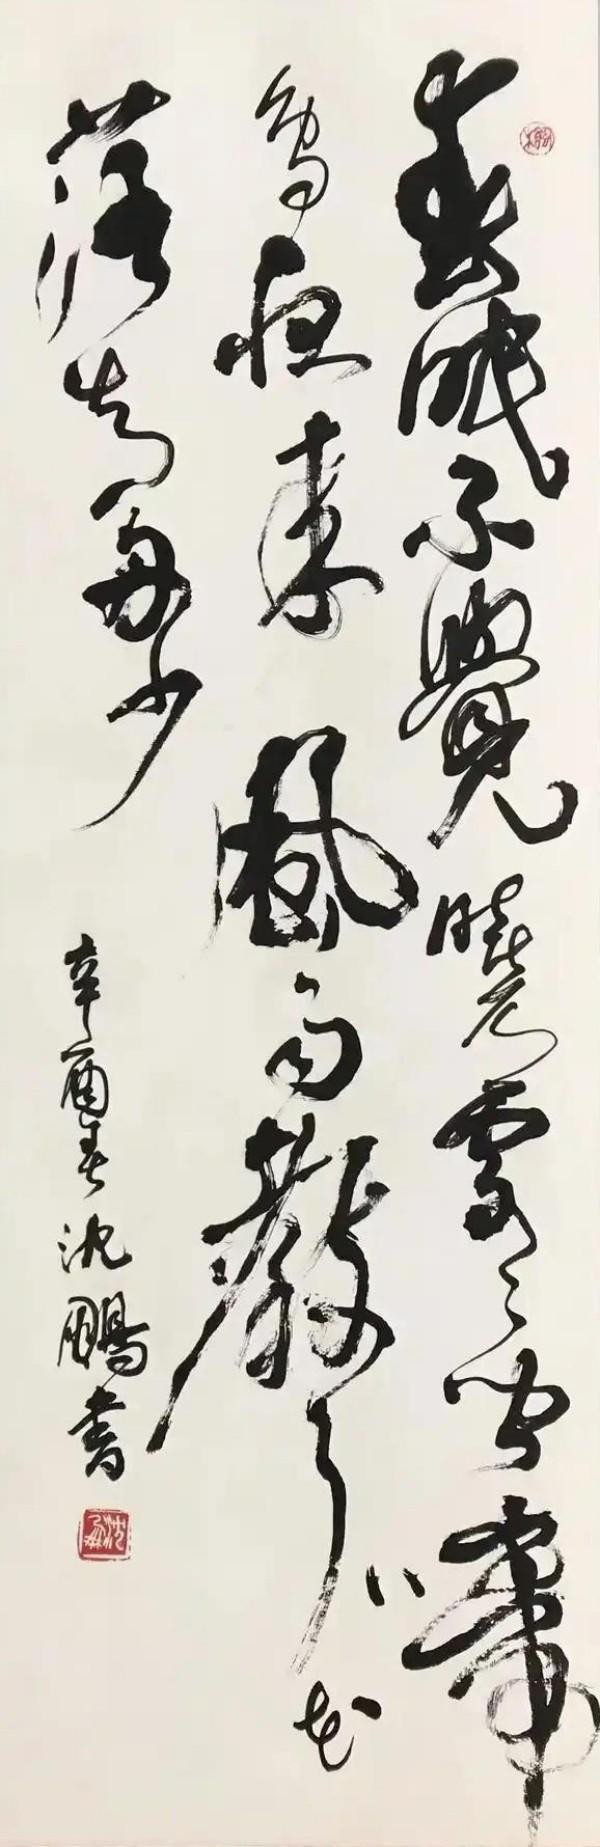 春眠不覺曉處々聞啼
鳥夜來風雨聲花
落知多少
辛酉春沈鵬書
沈鵬